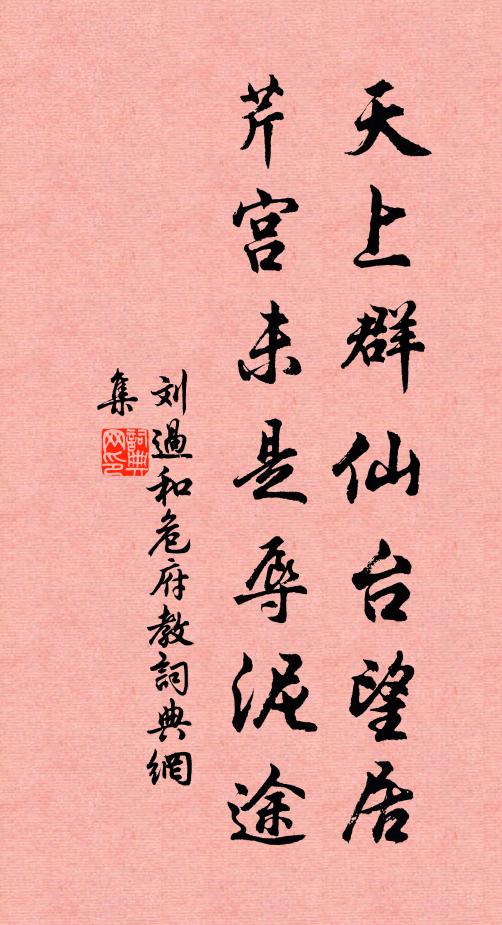 天上群仙台望居
芹宫未是辱泥途
刘过和危府教词典網
集
詞典
网印